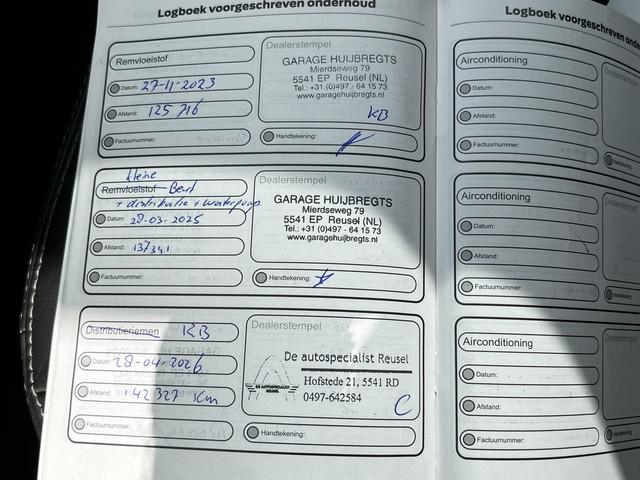 Logboek voorgeschreven onderhoud
Remvloeistof
Datum: 27-11-2023
Afstand: 125 716
Factuurnummer:
Dealerstempel
GARAGE HUIJBREGTS
Mierdseweg 79
5541 EP Reusel (NL)
Tel.: +31 (0)497 - 64 15 73
www.garagehuijbregts.nl
KB
Handtekening:
kleine
Remvloeistof Beurt
+ distributie + waterpomp
Datum: 28-03-2025
Afstand: 137341
Factuurnummer:
Dealerstempel
GARAGE HUIJBREGTS
Mierdseweg 79
5541 EP Reusel (NL)
Tel.: +31 (0)497 - 64 15 73
www.garagehuijbregts.nl
Handtekening:
Distributieriemen KB
Datum: 28-04-2026
Afstand: 142 327 Km
Factuurnummer:
Dealerstempel
De autospecialist Reusel
DE AUTOSPECIALIST
REUSEL
Hofstede 21, 5541 RD
0497-642584
C
Handtekening:
Logboek voorgeschreven onde
Airconditioning
Datum:
Afstand:
Factuurnummer:
Airconditioning
Datum:
Afstand:
Factuurnummer:
Airconditioning
Datum:
Afstand:
Factuurnummer: